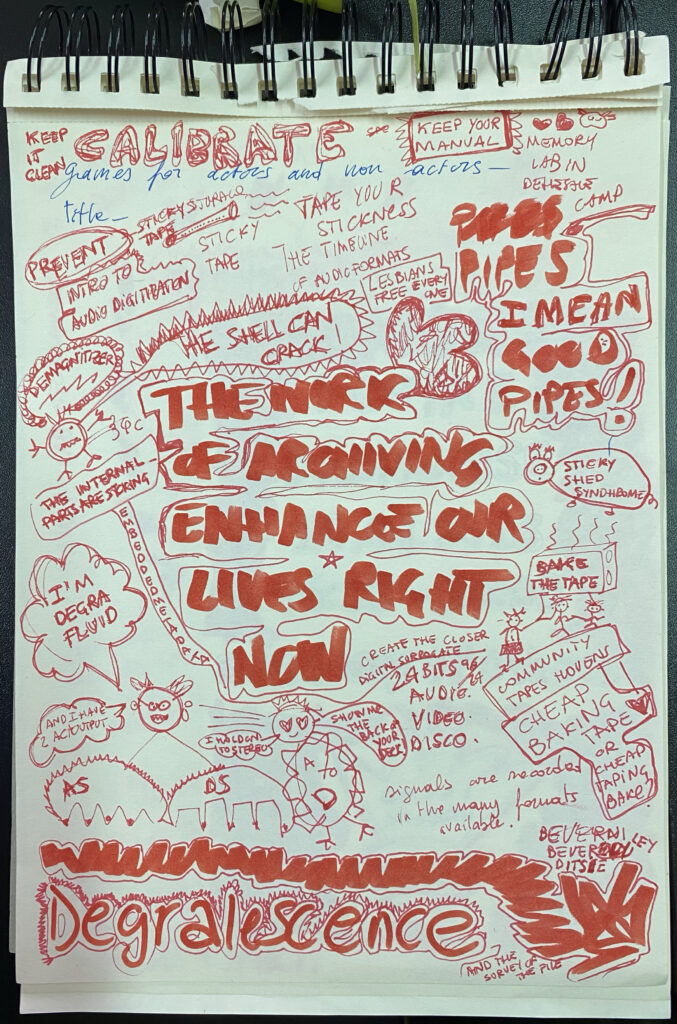 KEEP
IT
CLEAN
CALIBRATE
KEEP YOUR
MANUAL
MEMORY
LAB IN
games for actors and non actors—
title—
CAMP
PREVENT
STICKY STORAGE
TAPE
STICKY
TAPE
TAPE YOUR
STICKNESS
THE TIMELINE
OF AUDIO FORMATS
INTRO TO
AUDIO DIGITIZATION
LESBIANS
FREE EVERY
ONE
PIPES
I MEAN
GOOD
PIPES!
THE SHELL CAN
CRACK
DEMAGNITZER
THE WORK
OF ARCHIVING
ENHANCE OUR
LIVES RIGHT
NOW
THE INTERNAL
PARTS ARE STORING
EMBEDDED METADATA
STICKY
SHED
SYNDHROME
BAKE
THE TAPE
I'M
DEGRA
FLUID
CREATE THE CLOSER
DIGITAL SURROGATE
24BITS 96
24
AUDIO.
VIDEO.
DISCO.
COMMUNITY
TAPES HOVENS
CHEAP
BAKING
TAPE
OR
CHEAP
TAPING
BAKE?
AND I HAVE
2 AC/OUTPUT
I HOLD ON
TO STEREO
SHOW ME
THE BACK OF
YOUR
DECK
AS
DS
A
TO
D
signals are recorded
in the many formats
available.
BEVERNI
BEVERLEY
DITSIE
Degralescence
AND THE
SURVEY OF
THE PILE